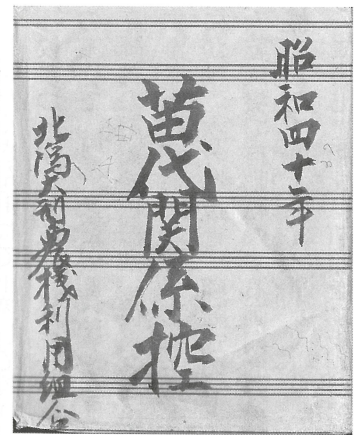 昭和四十年
苗代関係控
北隅大型農機利用組合